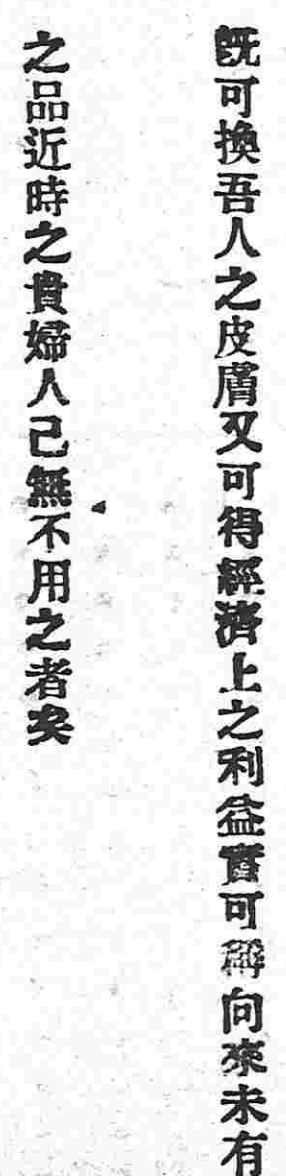 既可換吾人之皮膚又可得經濟上之利益實可稱向來未有
之品近時之貴婦人己無不用之者矣